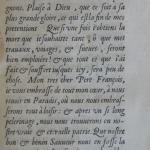 gnons. Plaise à Dieu, que ce soit à sa
plus grande gloire, ce qui est la fin de mes
pretentions Que si vne fois i'obtiens la
more que ie souhaitte tant
trauaux, voiages, & sueurs, seront
bien employées! & que tout ce que i'ai
fait & souffert iusques icy, sera peu de
chose. Mon tres cher Pere François,
ie vous embrasse de tout mon cœur, à nous
reuoir en Paradis, où nous nous embras-
serons tout à loisir: & apres vn si long
pelerinage, nous nous trouuerons en no-
stre vraie et reelle patrie. Que nostre
bon & benin Sauueur nous en fasse la